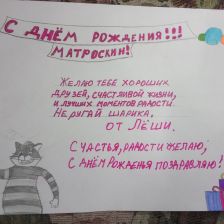 С ДНЁМ РОЖДЕНИЯ!!!
МАТРОСКИН!
ЖЕЛАЮ ТЕБЕ ХОРОШИХ
ДРУЗЕЙ, СЧАСТЛИВОЙ ЖИЗНИ,
И ЛУЧШИХ МОМЕНТОВ РАДОСТИ.
НЕ РУГАЙ ШАРИКА,
ОТ ЛЁШИ.
СЧАСТЬЯ, РАДОСТИ ЖЕЛАЮ,
С ДНЁМ РОЖДЕНЬЯ ПОЗДРАВЛЯЮ!